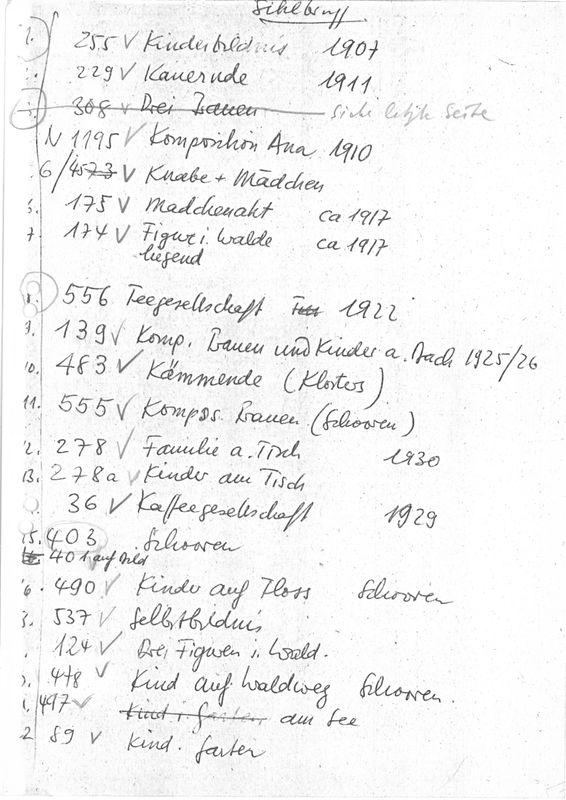 Sihlbrugg
1. 255 ✓ Kinderbildnis 1907
229 ✓ Kauernde 1911
308 ✓ Drei Frauen — siehe letzte Seite
N 1195 ✓ Komposition Ana 1910
6/4573 ✓ Knabe + Mädchen
175 ✓ Mädchenakt ca 1917
7. 174 ✓ Figur i. Walde ca 1917
liegend
8. 556 Teegesellschaft 1922
9. 139 ✓ Komp. Frauen und Kinder a. Bach 1925/26
10. 483 ✓ Kämmende (Klosters)
11. 555 ✓ Kompos. Frauen (Schooren)
12. 278 ✓ Familie a. Tisch 1930
13. 278a ✓ Kinder am Tisch
36 ✓ Kaffeegesellschaft 1929
15. 403 Schooren
401 auf Bild
6. 490 ✓ Kinder auf Floss Schooren
537 ✓ Selbstbildnis
124 ✓ Drei Figuren i. Wald.
478 ✓ Kind auf Waldweg Schooren.
497 ✓ Kind i. Garten am See
2 89 ✓ Kind. Garten